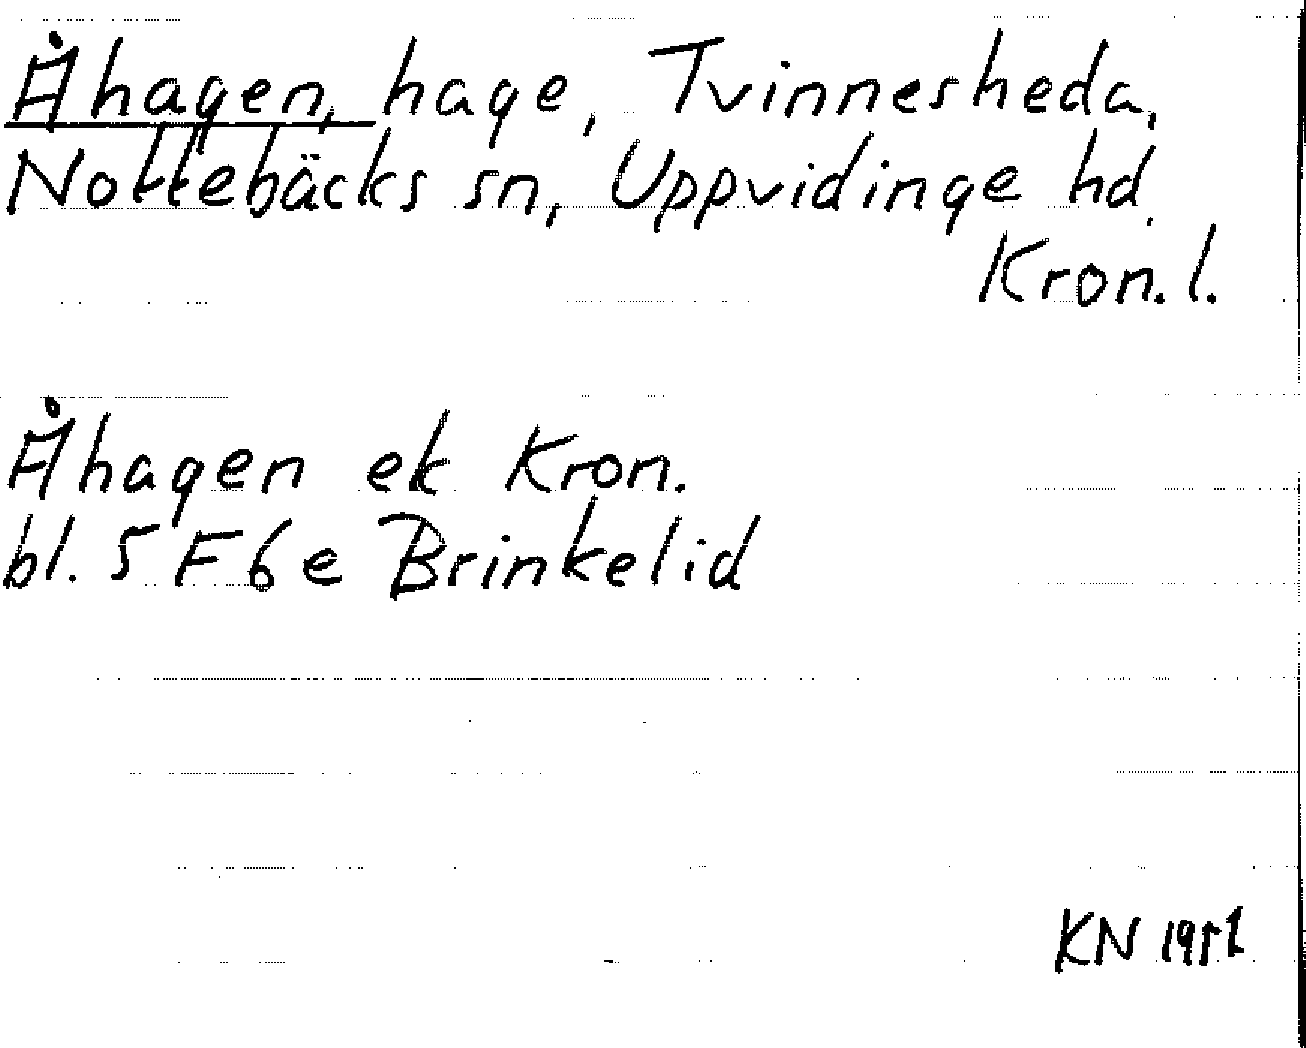 Åhagen, hage, Tvinnesheda,
Nottebäcks sn, Uppvidinge hd.
Kron. l.
Åhagen ek Kron.
bl. 5 F 6 e Brinkelid
KN